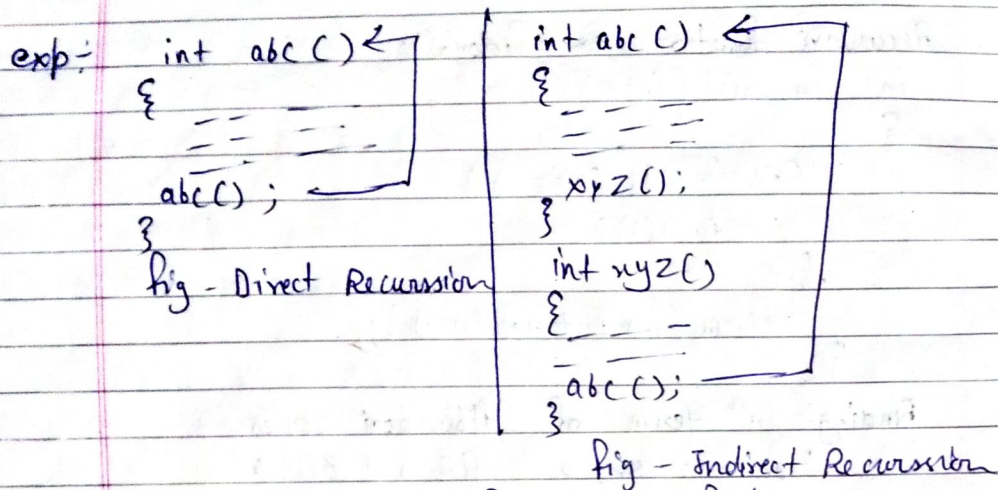 exp:- int abc()
{
abc();
}
fig - Direct Recurssion
int abc()
{
xyz();
}
int xyz()
{
abc();
}
fig - Indirect Recurssion